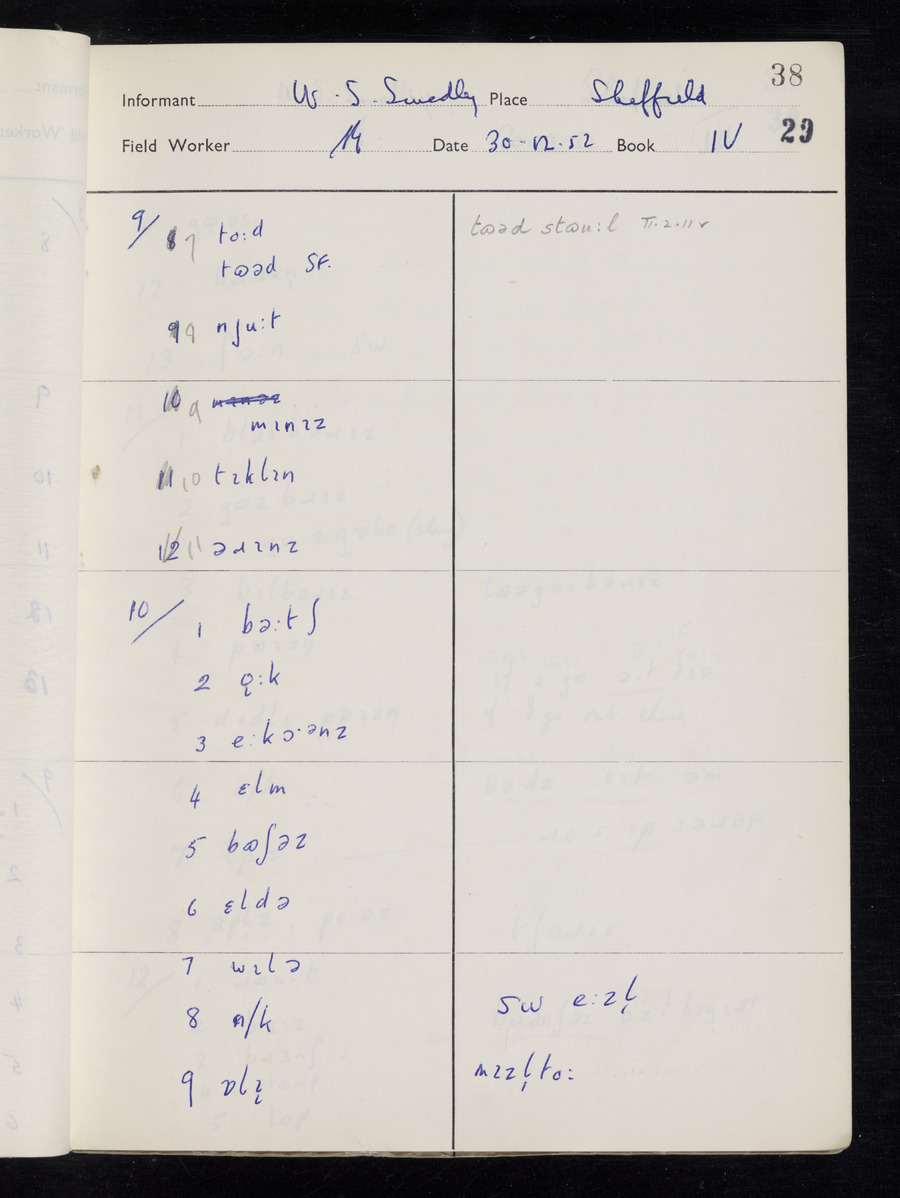 38
Informant W. S. Smedley Place Sheffield
Field Worker Date 30-12-52 Book IV 29
9/ 7 to:d tɷəd stɷu:l II.2.11
tɷəd SF.
9 nju:t
10 9
mɪnɪz
11 10 tɪklɪn
12 11 əɹɪnz
10/ 1 bə:tʃ
2 o̜:k
3 e:kɔ·ənz
4 ɛlm
5 bɷʃəz
6 ɛldə
7 wɪlə
8 n/k SW e:zl̩
9 ɒlɪ̨ mɪzl̩to: